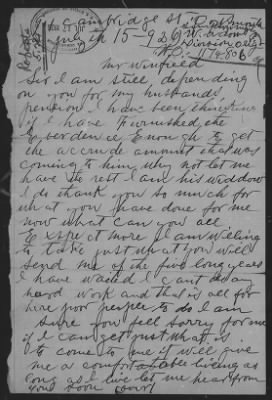 Cambridge St
15-929
Mr Winfield
Sir I am still depending
on you for my husbands
pension I have been thinking
if I have Furnished the
Eyberdence Enough to get
the accrude amount that was
coming to him why not let me
have the rest I am his widdow
I do thank you so much for
what you have done for me
now what can you all
Exspect more I am willing
to take just what you will
send me of the five long years
I have waited I cant do any
hard work and that is all for
here poor people to do I am
sure you feel sorry for me
if I can get just what is
to come to me it will give
me a comfortable living as
long as I live let me hear from
you soon